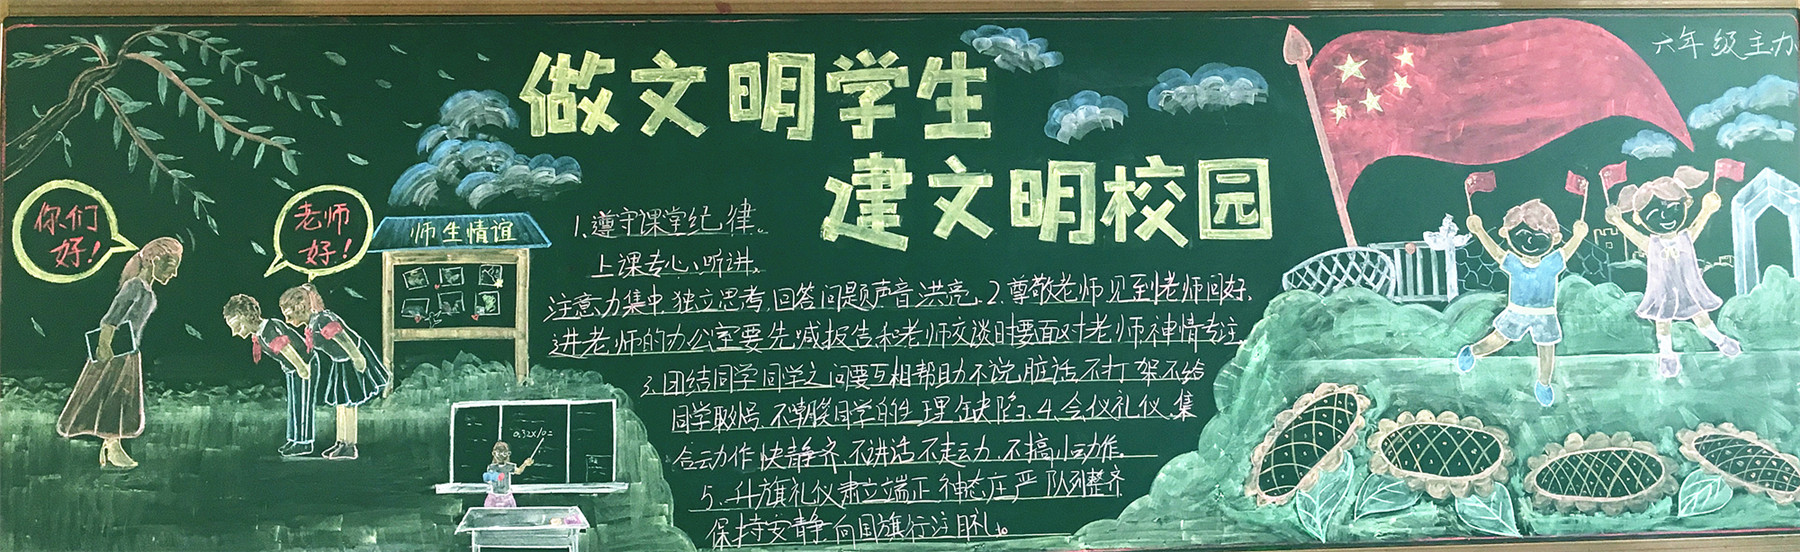 做文明学生
建文明校园
六年级主办
你们
好！
老师
好！
师生情谊
1、遵守课堂纪律。
上课专心听讲，
注意力集中，独立思考，回答问题声音洪亮。2.尊敬老师见到老师问好，
进老师的办公室要先喊报告和老师交谈时要面对老师神情专注。
3.团结同学同学之间要互相帮助不说脏话不打架不给
同学取外号，不嘲笑同学的生理缺陷、4、会仪礼仪、集
合动作快静齐，不讲话不走动，不搞小动作。
5、升旗礼仪肃立端正神态庄严队列整齐
保持安静，向国旗行注目礼。